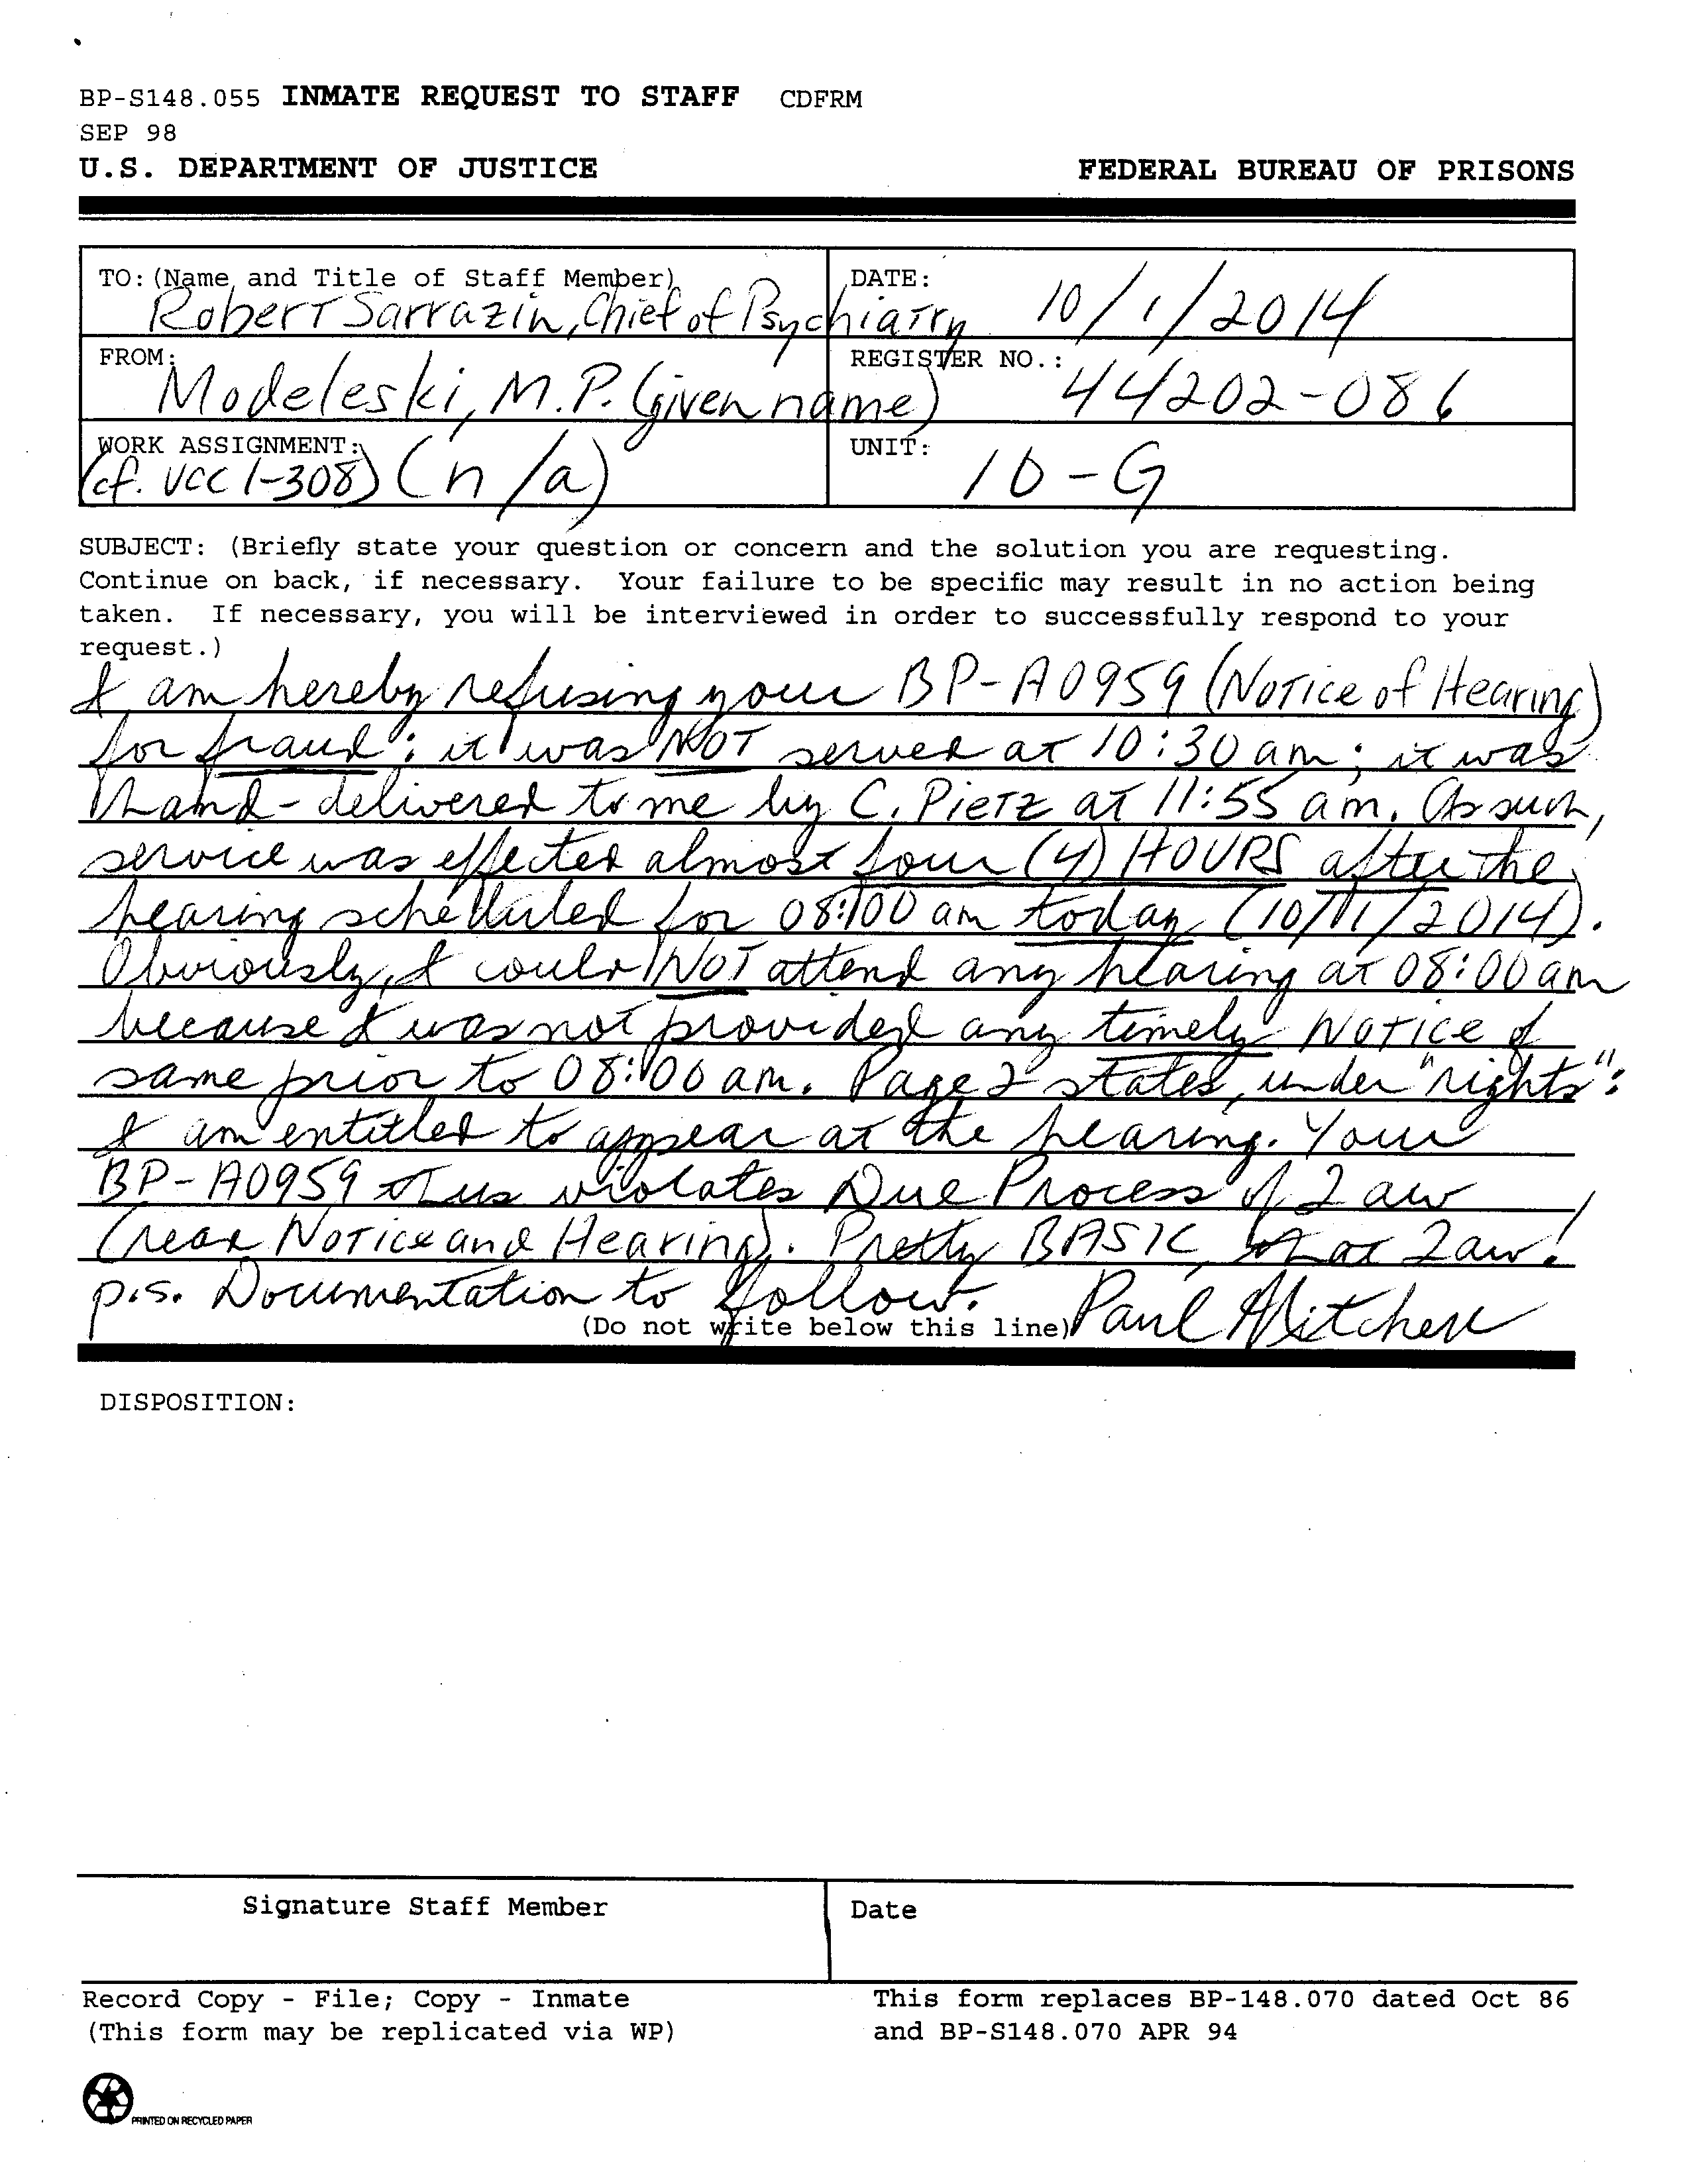 BP-S148.055 INMATE REQUEST TO STAFF CDFRM
SEP 98
U.S. DEPARTMENT OF JUSTICE FEDERAL BUREAU OF PRISONS
TO: (Name and Title of Staff Member) DATE:
Robert Sarrazin, Chief of Psychiatry 10/1/2014
FROM: REGISTER NO.:
Modeleski, M.P. (given name) 44202-086
WORK ASSIGNMENT: UNIT:
(cf. UCC 1-308) (n/a) 10-G
SUBJECT: (Briefly state your question or concern and the solution you are requesting.
Continue on back, if necessary. Your failure to be specific may result in no action being
taken. If necessary, you will be interviewed in order to successfully respond to your
request.)
I am hereby refusing your BP-A0959 (Notice of Hearing)
for fraud: it was NOT served at 10:30 am; it was
hand-delivered to me by C. Pietz at 11:55 am. As such,
service was effected almost four (4) HOURS after the
hearing scheduled for 08:00 am today (10/1/2014).
Obviously, I could NOT attend any hearing at 08:00 am
because I was not provided any timely Notice of
same prior to 08:00 am. Page 2 states, under "rights":
I am entitled to appear at the hearing. Your
BP-A0959 thus violates Due Process of Law
(read Notice and Hearing). Pretty BASIC, Law!
p.s. Documentation to follow. Paul Mitchell
(Do not write below this line)
DISPOSITION:
Signature Staff Member Date
Record Copy - File; Copy - Inmate This form replaces BP-148.070 dated Oct 86
(This form may be replicated via WP) and BP-S148.070 APR 94
PRINTED ON RECYCLED PAPER